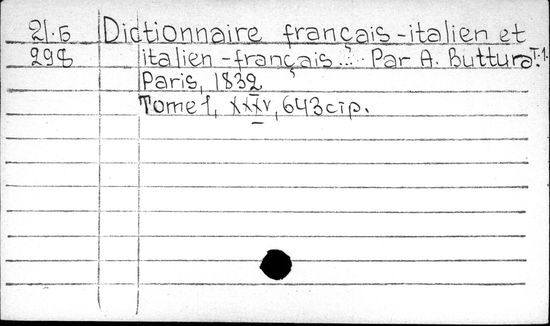 21.Б Dictionnaire français-italien et
298 italien-français... Par A. Buttura T.1.
Paris, 1832
Tome 1, XXXV, 643 стр.